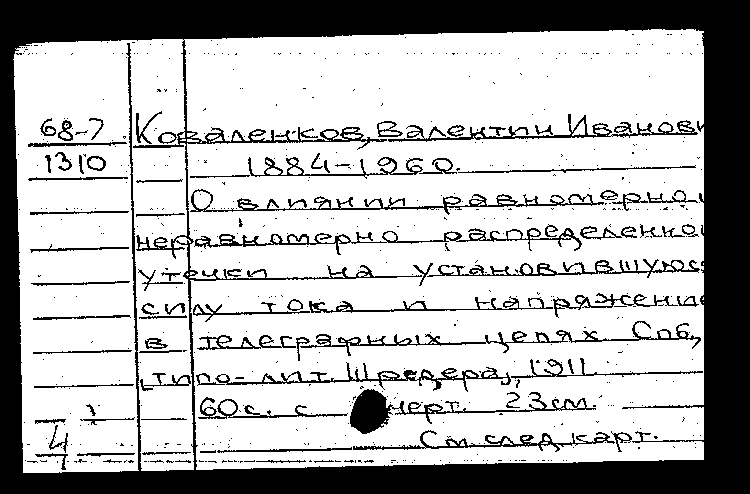 68-7 Коваленков, Валентин Иванови
1310 1884-1960.
О влиянии равномерно
неравномерно распределенно
утечки на установившуюс
силу тока и напряжение
в телеграфных цепях Спб.,
"типо-лит. Шредера", 1911
60 с. с черт. 23см
4 См след карт.